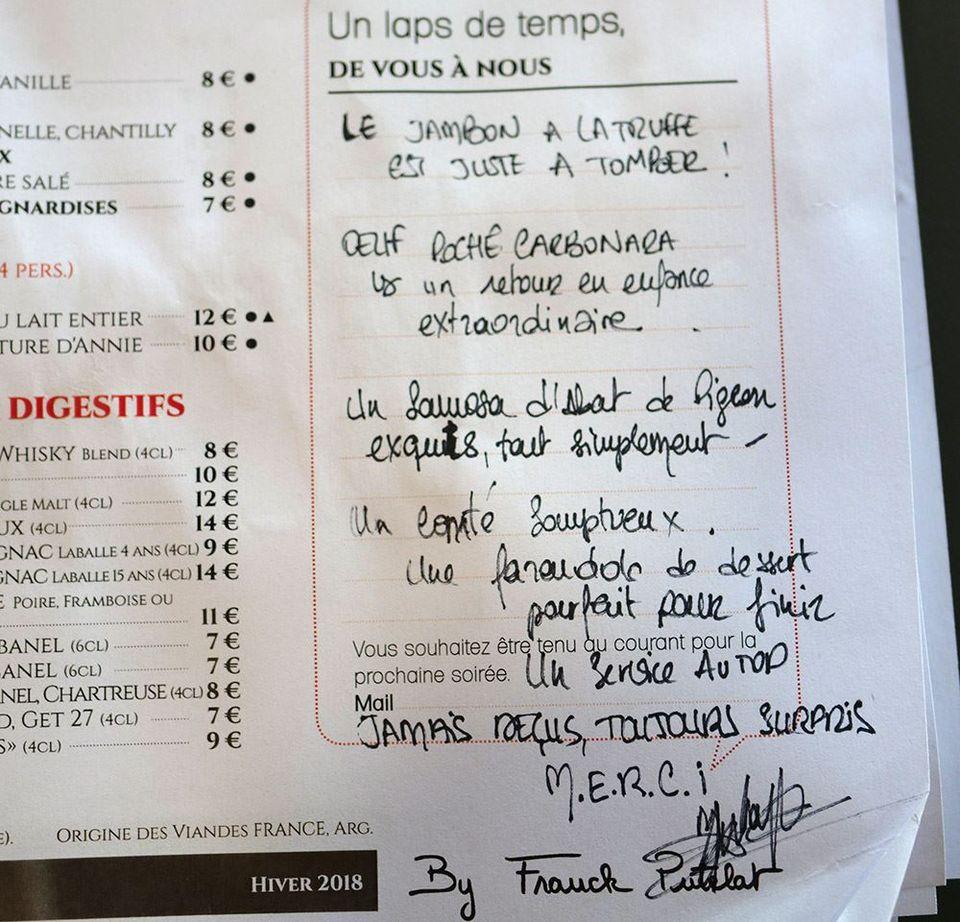 ANILLE 8 € ●
NELLE, CHANTILLY 8 € ●
X
RE SALÉ 8 € ●
GNARDISES 7 € ●
4 PERS.)
U LAIT ENTIER 12 € ● ▲
TURE D'ANNIE 10 € ●
DIGESTIFS
WHISKY BLEND (4CL) 8 €
10 €
GLE MALT (4CL) 12 €
UX (4CL) 14 €
GNAC LABALLE 4 ANS (4CL) 9 €
GNAC LABALLE 15 ANS (4CL) 14 €
E POIRE, FRAMBOISE OU
11 €
BANEL (6CL) 7 €
ANEL (6CL) 7 €
NEL, CHARTREUSE (4CL) 8 €
D, GET 27 (4CL) 7 €
S» (4CL) 9 €
E). ORIGINE DES VIANDES FRANCE, ARG.
HIVER 2018
Un laps de temps,
DE VOUS À NOUS
LE JAMBON A LA TRUFFE
EST JUSTE A TOMBER !
OEUF POCHÉ CARBONARA
↳ un retour en enfance
extraordinaire.
Un Samosa d'Abat de Pigeon
exquis, tout simplement –
Un Comté Somptueux.
Une farandole de dessert
parfait pour finir
Vous souhaitez être tenu au courant pour la
prochaine soirée. Un Service AU TOP
Mail
JAMAIS DEÇUS, TOUJOURS SURPRIS
M.E.R.C.i
By Franck Putelat